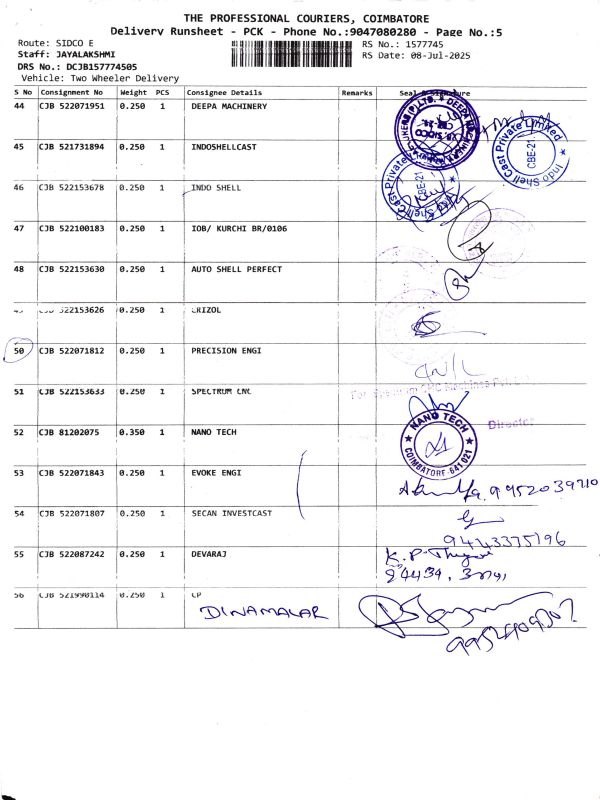 THE PROFESSIONAL COURIERS, COIMBATORE
Delivery Runsheet - PCK - Phone No.:9047080280 - Page No.:5
Route: SIDCO E
RS No.: 1577745
Staff: JAYALAKSHMI
RS Date: 08-Jul-2025
DRS No.: DCJB157774505
Vehicle: Two Wheeler Delivery
S No Consignment No Weight PCS Consignee Details Remarks Seal & Signature
44 CJB 522071951 0.250 1 DEEPA MACHINERY
45 CJB 521731894 0.250 1 INDOSHELLCAST
Indo Shell Cast Private Limited
CBE-21
46 CJB 522153678 0.250 1 INDO SHELL
Shell Cast Private
CBE-21
47 CJB 522100183 0.250 1 IOB/ KURCHI BR/0106
48 CJB 522153630 0.250 1 AUTO SHELL PERFECT
CJB 522153626 0.250 1 CRIZOL
50 CJB 522071812 0.250 1 PRECISION ENGI
51 CJB 522153633 0.250 1 SPECTRUM CNC
Director
52 CJB 81202075 0.350 1 NANO TECH
NANO TECH
COIMBATORE-641 021
53 CJB 522071843 0.250 1 EVOKE ENGI
9952039710
54 CJB 522071807 0.250 1 SECAN INVESTCAST
9443375196
55 CJB 522087242 0.250 1 DEVARAJ
56 CJB 521998114 0.250 1 CP
DINAMALAR